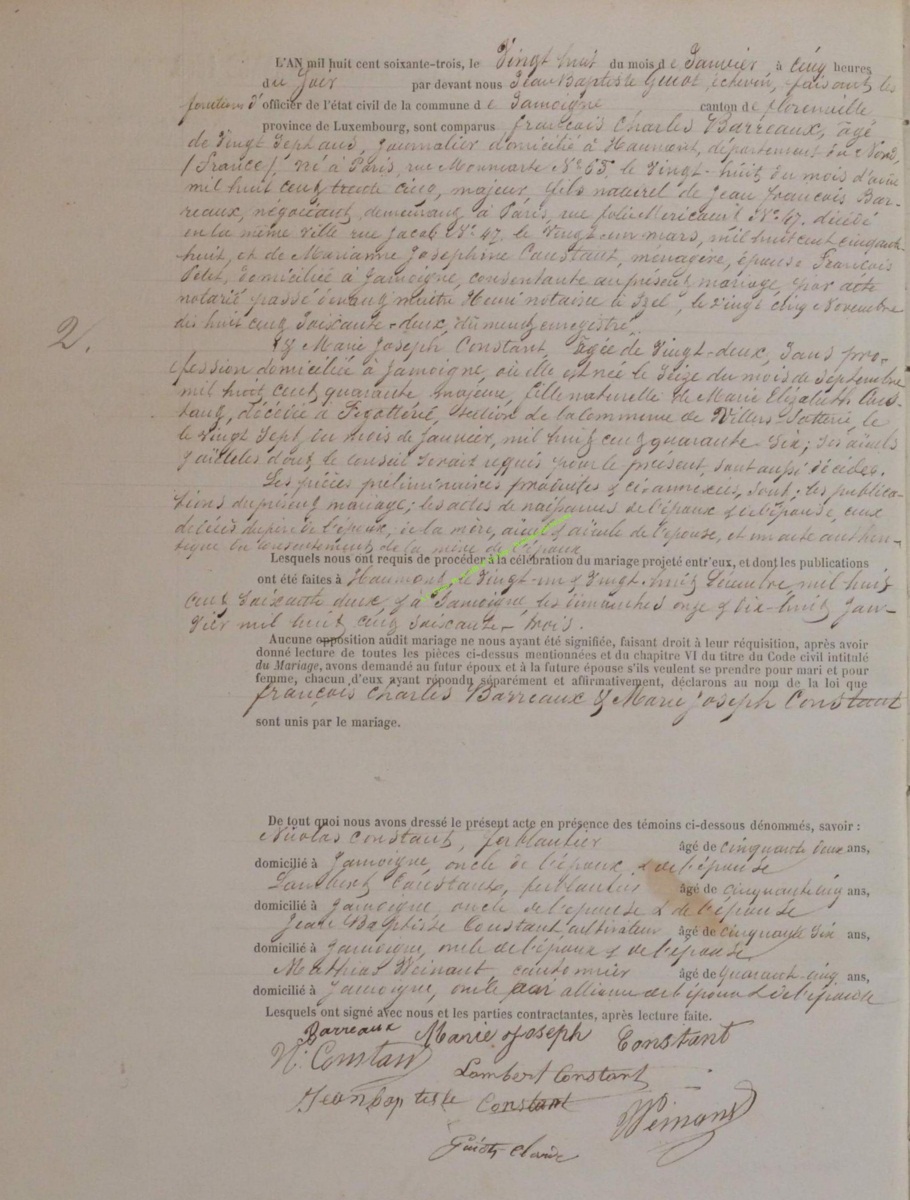 L'AN mil huit cent soixante-trois, le Vingt huit du mois de Janvier à cinq heures
du Soir par devant nous Jean Baptiste échevin, faisant les
fonctions d'officier de l'état civil de la commune de Jamoigne canton de florenville
province de Luxembourg, sont comparus françois Charles Barreaux, âgé
de Vingt Sept ans, journalier domicilié à Haumont, département du Nord,
(France), né à Paris, rue Montmartre No 65, le Vingt-huit du mois d'avril
mil huit cent trente cinq, majeur, fils naturel de Jean françois Bar-
reaux, négociant, demeurant à Paris, rue folie Mericourt No 47, décédé
en la même ville rue Jacob No 47, le Vingt-un mars, mil huit cent cinquante
huit, et de Marianne Josephine Constant, menagère, épouse François
Petit, domiciliée à Jamoigne, consentante au présent mariage par acte
notarié passé devant maître Henri notaire à Izel, le vingt cinq Novembre
dix huit cent Soixante-deux, dûment enregistré.
2.
& Marie Joseph Constant, âgée de Vingt-deux, Sans pro-
fession domiciliée à Jamoigne, où elle est née le Seize du mois de Septembre
mil huit cent quarante, majeure, fille naturelle de Marie Elisabeth Cons-
tant, décédée à section de la commune de Villers le
le Vingt Sept du mois de Janvier, mil huit cent quarante-Six; Ses aïeuls
& aïeules dont le conseil serait requis pour le présent, sont aussi décédés.
Les pièces préliminaires produites & ci annexées, sont; les publica-
tions du présent mariage; les actes de naissances de l'époux & de l'épouse, ceux
de décès du père de l'époux, de la mère, aïeul & aïeule de l'épouse, et un acte authen-
tique du consentement de la mère de l'époux
Lesquels nous ont requis de procéder à la célébration du mariage projeté entr'eux, et dont les publications
ont été faites à Haumont, le Vingt-un & Vingt-huit Décembre mil huit
cent Soixante deux, & à Jamoigne, les dimanches onze & Dix-huit Jan-
vier mil huit cent soixante-trois.
Aucune opposition audit mariage ne nous ayant été signifiée, faisant droit à leur réquisition, après avoir
donné lecture de toutes les pièces ci-dessus mentionnées et du chapitre VI du titre du Code civil intitulé
du Mariage, avons demandé au futur époux et à la future épouse s'ils veulent se prendre pour mari et pour
femme, chacun d'eux ayant répondu séparément et affirmativement, déclarons au nom de la loi que
françois Charles Barreaux & Marie Joseph Constant
sont unis par le mariage.
De tout quoi nous avons dressé le présent acte en présence des témoins ci-dessous dénommés, savoir :
Nicolas Constant, ferblantier âgé de cinquante deux ans,
domicilié à Jamoigne, oncle de l'époux & de l'épouse
Lambert Constant, ferblantier âgé de cinquante cinq ans,
domicilié à Jamoigne oncle de l'epouse & de l'épouse
Jean Baptisse Constant cultivateur âgé de cinquante Six ans,
domicilié à Jamoigne, oncle de l'époux & de l'épouse.
Mathias Weinant cantonnier âgé de quarante-cinq ans,
domicilié à Jamoigne, oncle par alliance de l'époux & de l'épouse
Lesquels ont signé avec nous et les parties contractantes, après lecture faite.
Barreaux Marie Joseph Constant
N. Constant Lambert Constant
Jean baptiste Constant